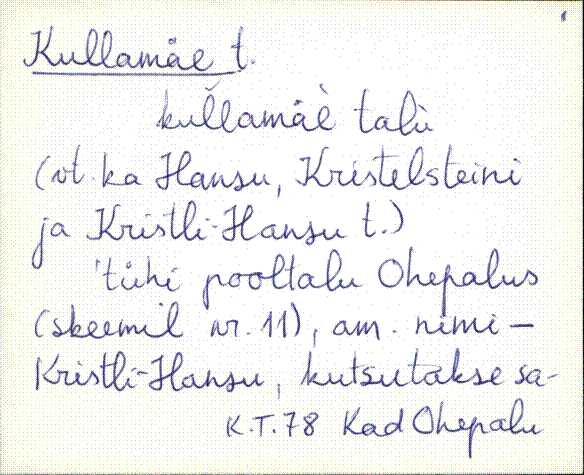 Kullamäe t.
kul̆lamäè talù
(vt. ka Hansu, Kristelsteini
ja Kristli-Hansu t.)
'tühi pooltalu Ohepalus
(skeemil nr. 11), am. nimi –
Kristli-Hansu, kutsutakse sa-
K.T.78 Kad Ohepalu